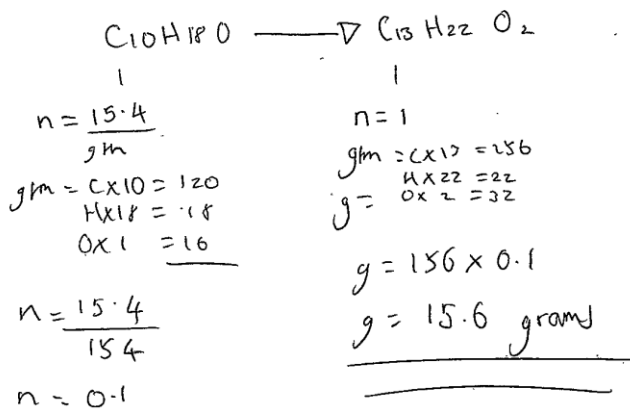 C10H18O → C13H22O2
1 1
n = 15.4 / gfm
gfm = C×10 = 120
H×18 = 18
O×1 = 16
n = 15.4 / 154
n = 0.1
n = 1
gfm = C×13 = 156
H×22 = 22
g = O×2 = 32
g = 156 × 0.1
g = 15.6 grams